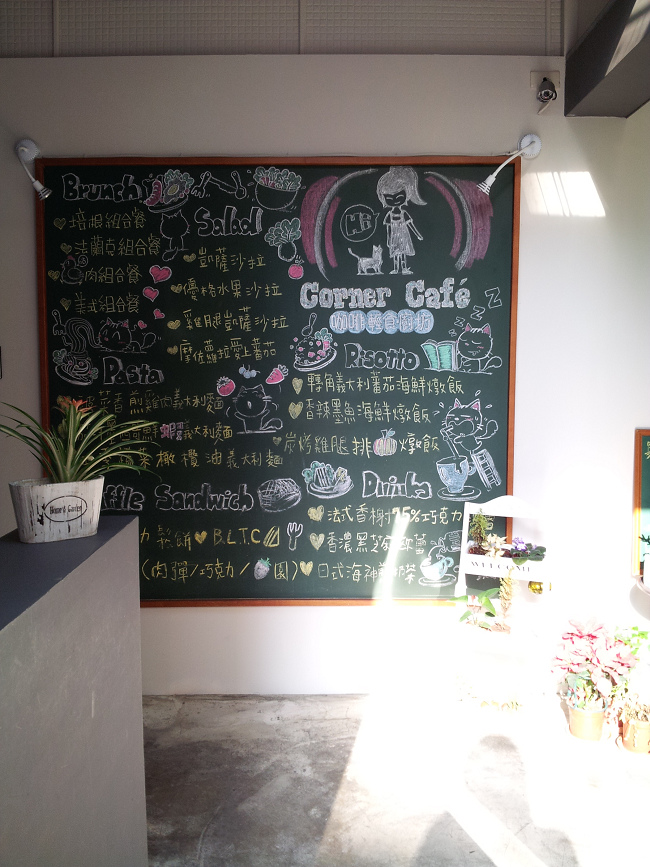 Brunch
培根組合餐
法蘭克組合餐
肉組合餐
美式組合餐
Salad
凱薩沙拉
優格水果沙拉
雞腿凱薩沙拉
摩佐蘿拉愛上蕃茄
Hi
Corner Café
咖啡輕食廚坊
zzz
Pasta
香煎雞肉義大利麵
義大利麵
橄欖油義大利麵
Risotto
轉角義大利蕃茄海鮮燉飯
香辣墨魚海鮮燉飯
炭烤雞腿排燉飯
Sandwich
鬆餅 B.L.T.C
Drinks
法式香榭75%巧克力
香濃黑芝麻
日式海神
WELCOME
Home & Garden